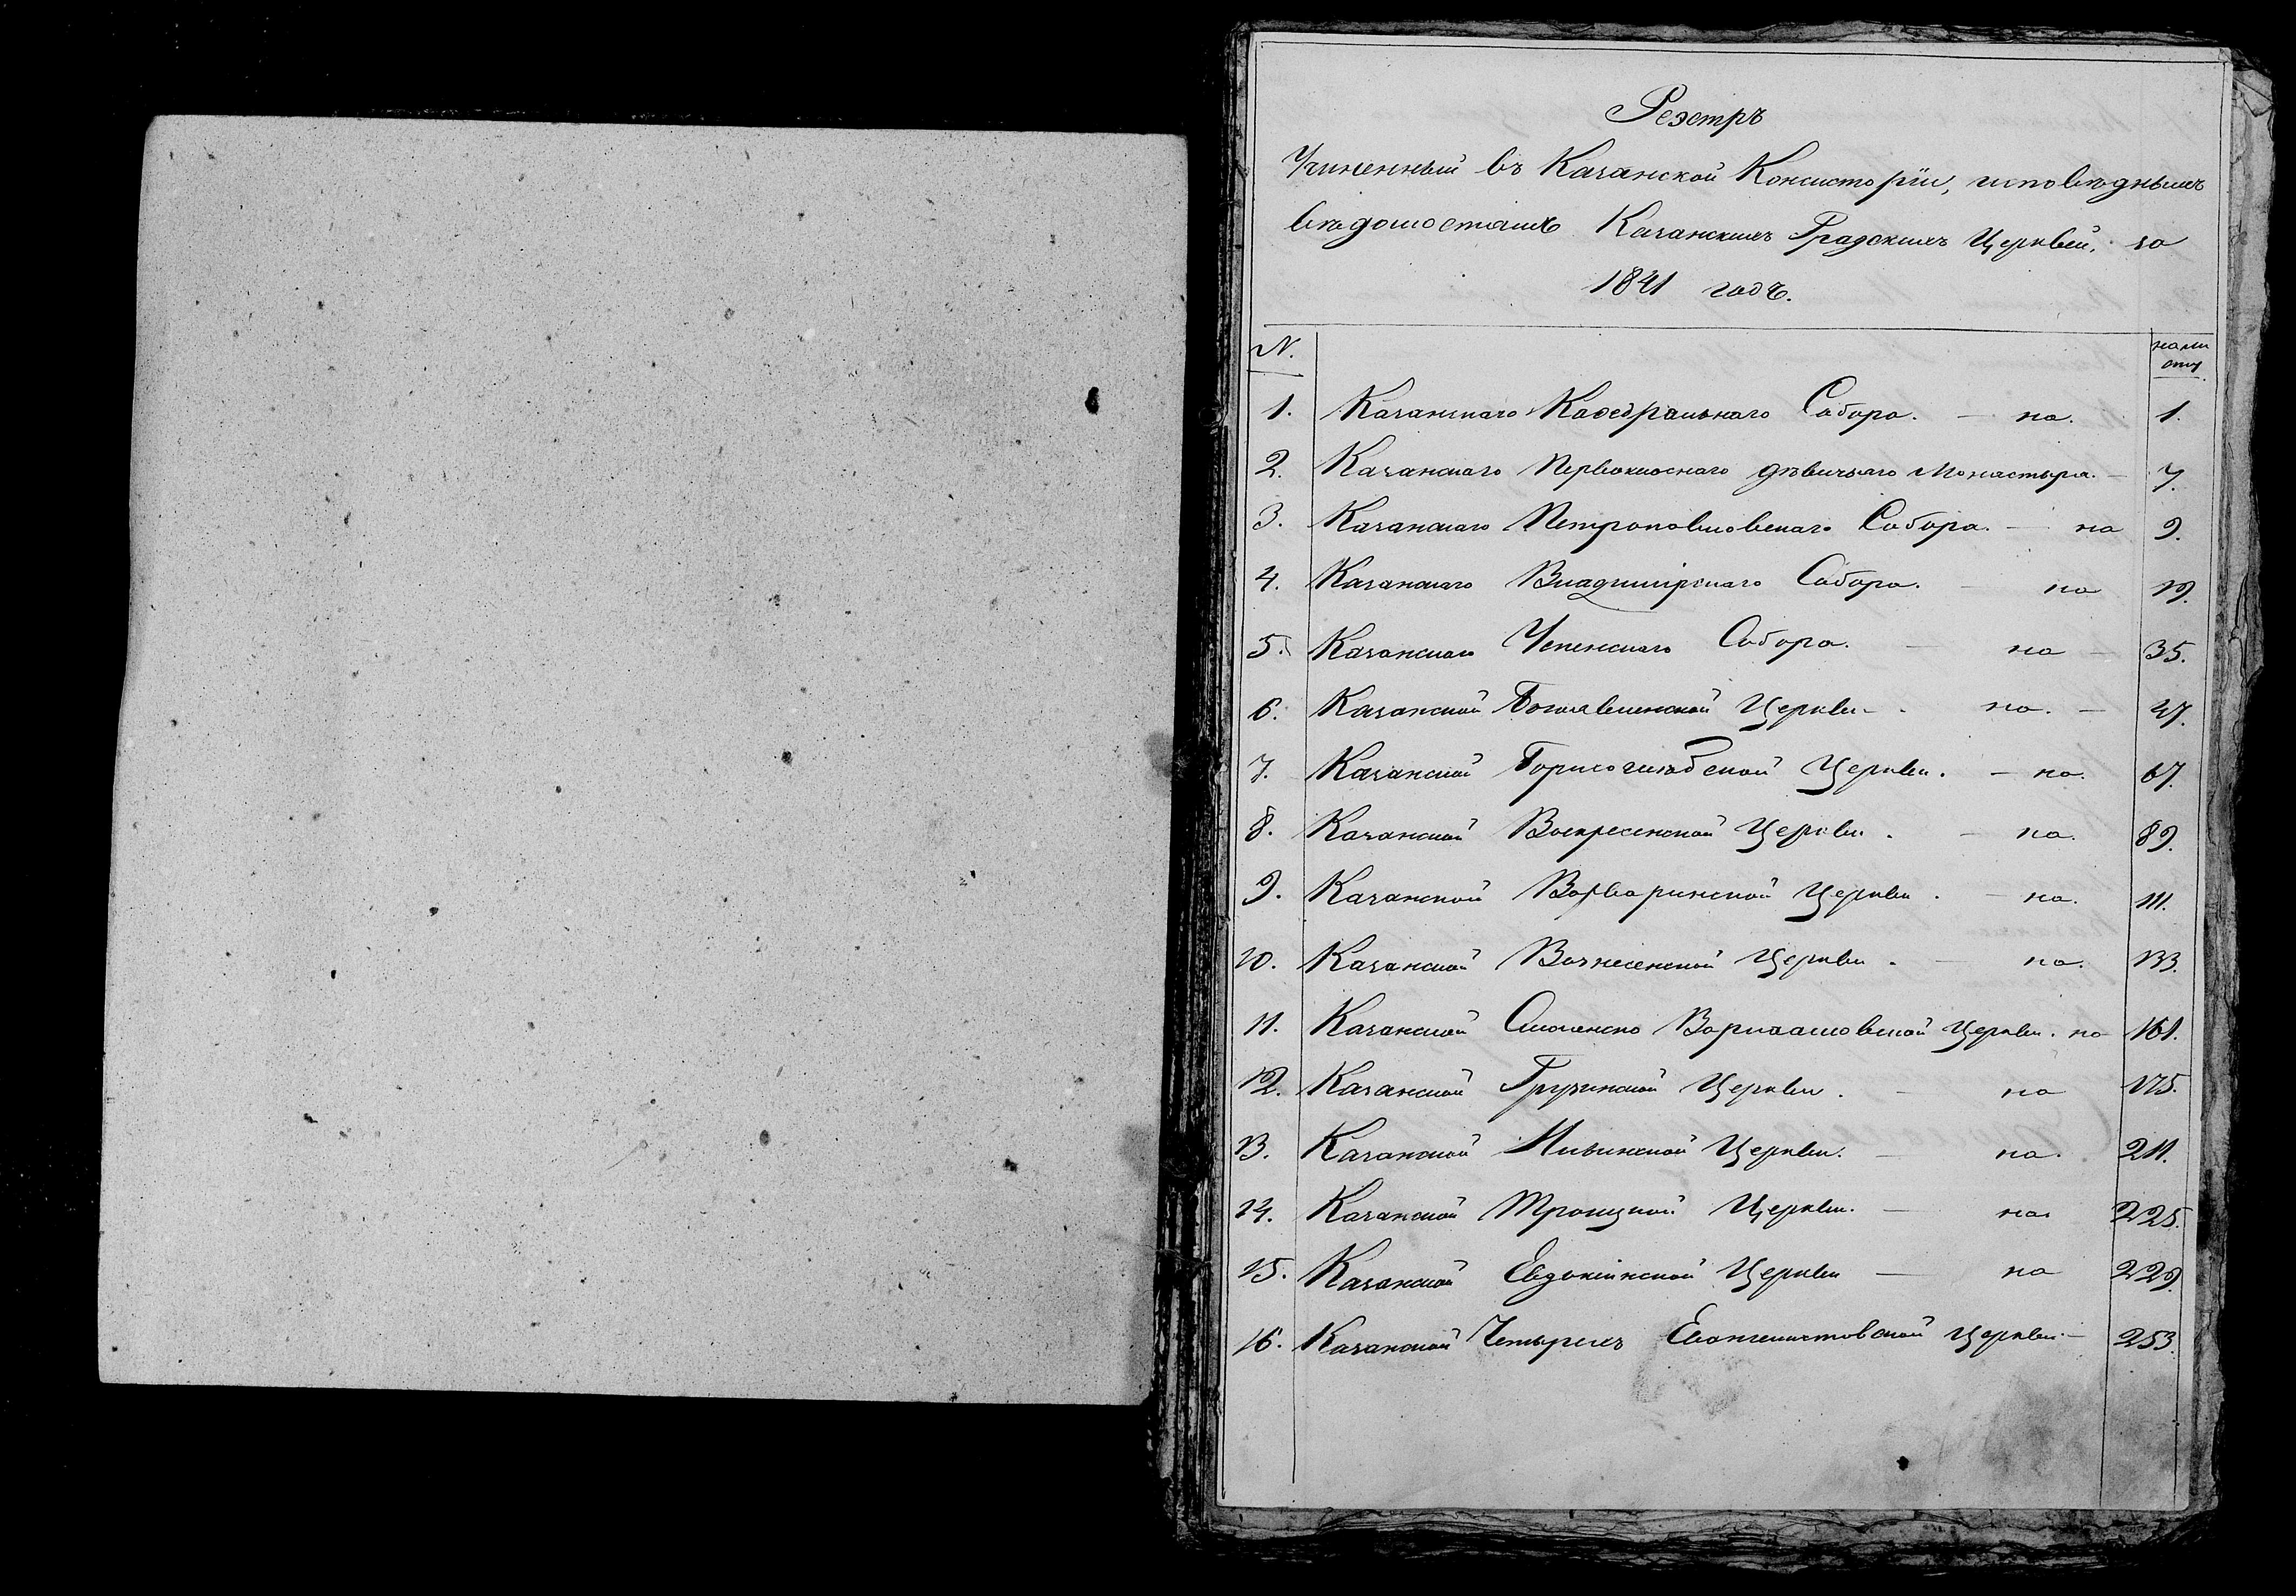 Реэстръ
Учиненный въ Казанской Консисторіи, исповѣднымъ
вѣдомостямъ Казанскихъ Градскихъ Церквей, за
1841 годъ.
N.
1. Казанскаго Каѳедральнаго Собора. — на. 1.
2. Казанскаго Первокласнаго дѣвичьяго Монастыря. — 7.
3. Казанскаго Петропавловскаго Собора. — на 9.
4. Казанскаго Владимірскаго Собора. — на 19.
5. Казанскаго Успенскаго Собора. — на — 35.
6. Казанской Богоявленской Церкви — на. — 47.
7. Казанской Борисоглѣбской Церкви. — на. 67.
8. Казанской Воскресенской Церкви. — на. 89.
9. Казанской Варваринской Церкви. — на. 111.
10. Казанской Вознесенской Церкви. — на. 133.
11. Казанской Смоленско Варлаамовской Церкви. на 161.
12. Казанской Грузинской Церкви. — на 175.
13. Казанской Ильинской Церкви. — на. 211.
14. Казанской Троицкой Церкви. — на. 225.
15. Казанской Евдокіинской Церкви — на 229.
16. Казанской Четырехъ Евангелистовской Церкви. — 253.